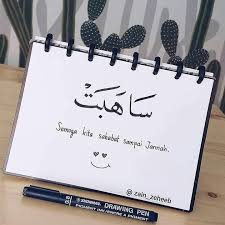 سَاهَبَتْ
Semoga kita sahabat sampai Jannah.
@zain_zahneb
DRAWING PEN